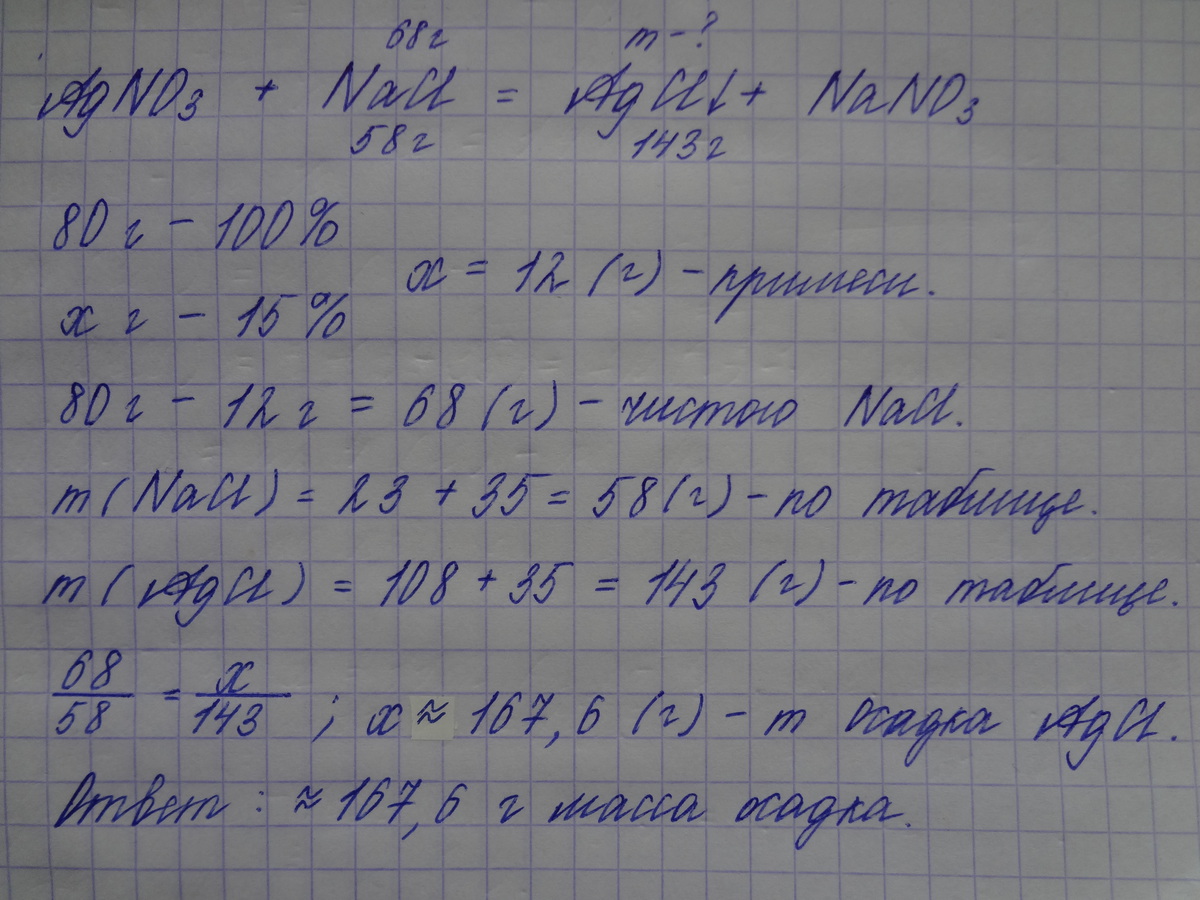 68г m - ?
AgNO3 + NaCl = AgCl↓ + NaNO3
58г 143г
80 г - 100%
x = 12 (г) - примеси.
x г - 15%
80 г - 12 г = 68 (г) - чистого NaCl.
m (NaCl) = 23 + 35 = 58 (г) - по таблице.
m (AgCl) = 108 + 35 = 143 (г) - по таблице.
68/58 = x/143 ; x ≈ 167,6 (г) - m осадка AgCl.
Ответ : ≈ 167,6 г масса осадка.